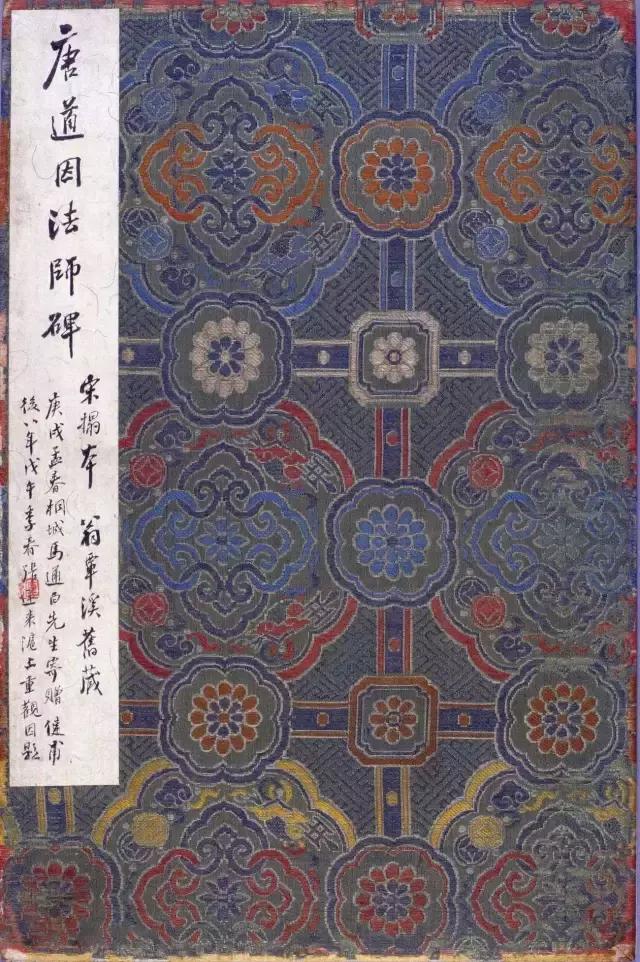 唐道因法師碑
宋搨本 翁覃溪舊藏
庚戌孟春桐城馬通白先生寄贈 健甫
後八年戊午季春張 來滬上重觀因題